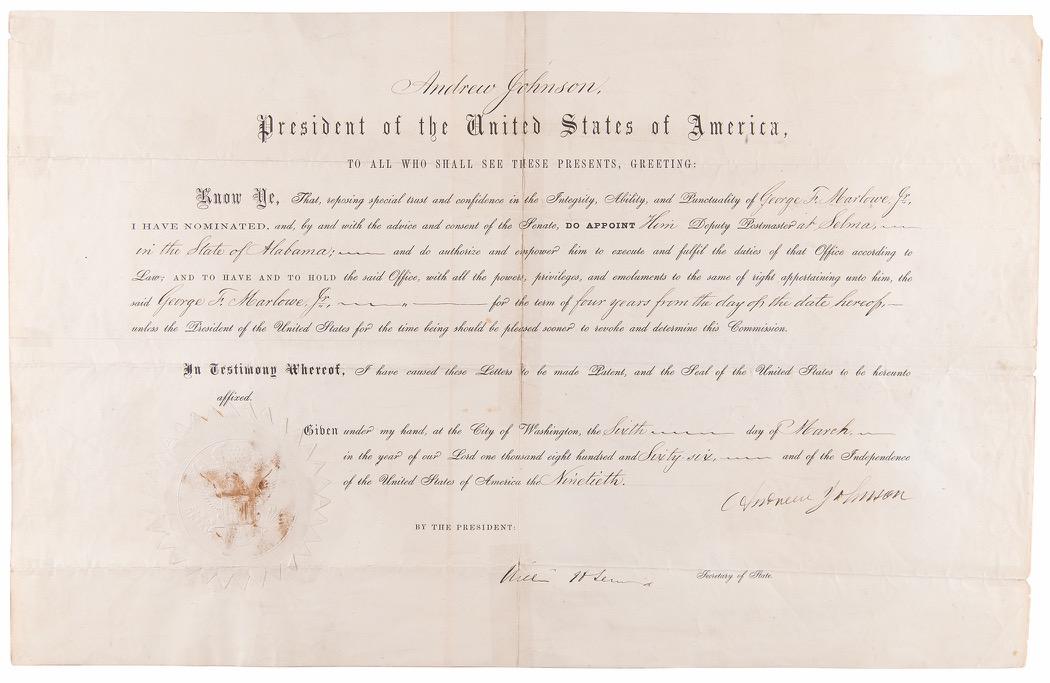 Andrew Johnson,
President of the United States of America,
TO ALL WHO SHALL SEE THESE PRESENTS, GREETING:
Know Ye, That, reposing special trust and confidence in the Integrity, Ability, and Punctuality of George F. Marlowe, Jr.
I HAVE NOMINATED, and, by and with the advice and consent of the Senate, DO APPOINT Him Deputy Postmaster at Selma,
in the State of Alabama; and do authorize and empower him to execute and fulfil the duties of that Office according to
Law; AND TO HAVE AND TO HOLD the said Office, with all the powers, privileges, and emoluments to the same of right appertaining unto him, the
said George F. Marlowe, Jr., for the term of four years from the day of the date hereof,
unless the President of the United States for the time being should be pleased sooner to revoke and determine this Commission.
In Testimony Whereof, I have caused these Letters to be made Patent, and the Seal of the United States to be hereunto
affixed.
Given under my hand, at the City of Washington, the Sixth day of March,
in the year of our Lord one thousand eight hundred and Sixty six, and of the Independence
of the United States of America the Ninetieth.
Andrew Johnson
BY THE PRESIDENT:
Secretary of State.